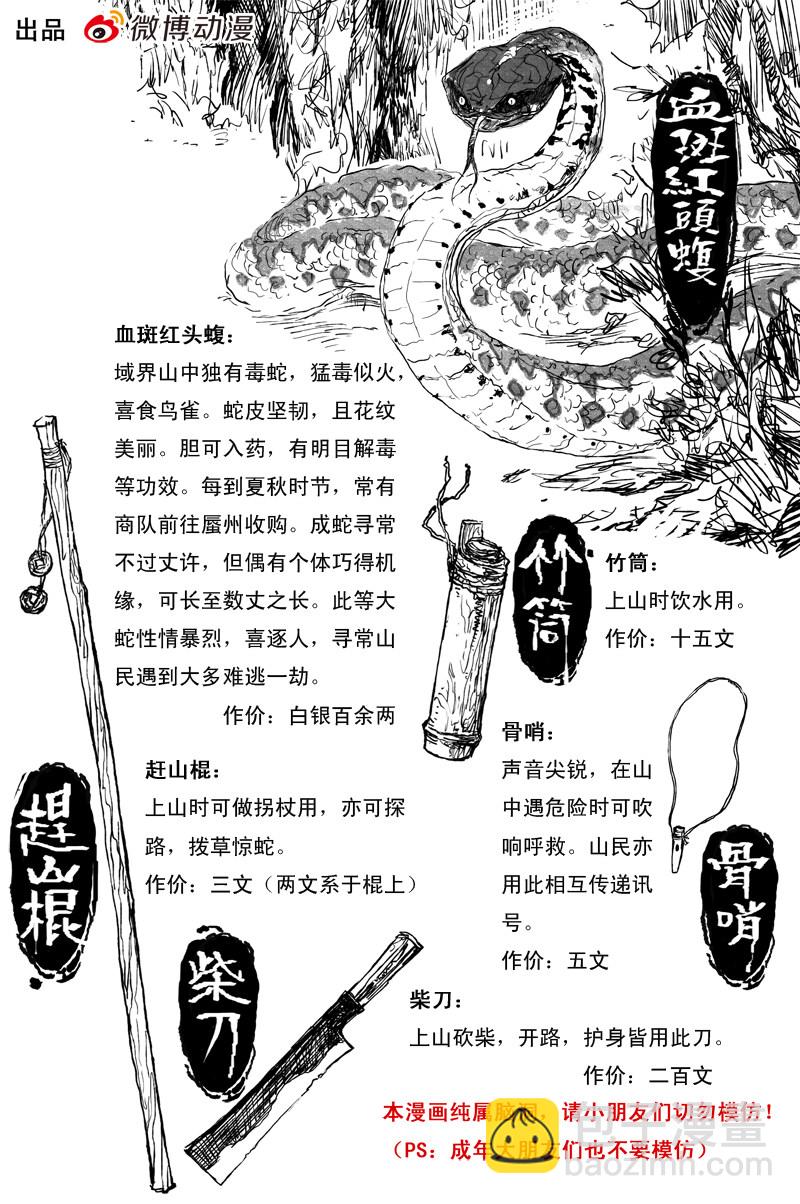 出品 微博动漫
血斑紅頭蝮
血斑红头蝮：
域界山中独有毒蛇，猛毒似火，
喜食鸟雀。蛇皮坚韧，且花纹
美丽。胆可入药，有明目解毒
等功效。每到夏秋时节，常有
商队前往蜃州收购。成蛇寻常
不过丈许，但偶有个体巧得机
缘，可长至数丈之长。此等大
蛇性情暴烈，喜逐人，寻常山
民遇到大多难逃一劫。
作价：白银百余两
竹筒
竹筒：
上山时饮水用。
作价：十五文
骨哨：
声音尖锐，在山
中遇危险时可吹
响呼救。山民亦
用此相互传递讯
号。
作价：五文
骨哨
赶山棍：
上山时可做拐杖用，亦可探
路，拨草惊蛇。
作价：三文（两文系于棍上）
趕山棍
柴刀
柴刀：
上山砍柴，开路，护身皆用此刀。
作价：二百文
本漫画纯属脑洞，请小朋友们切勿模仿！
（PS：成年大朋友们也不要模仿）
包子漫畫
baozimh.com